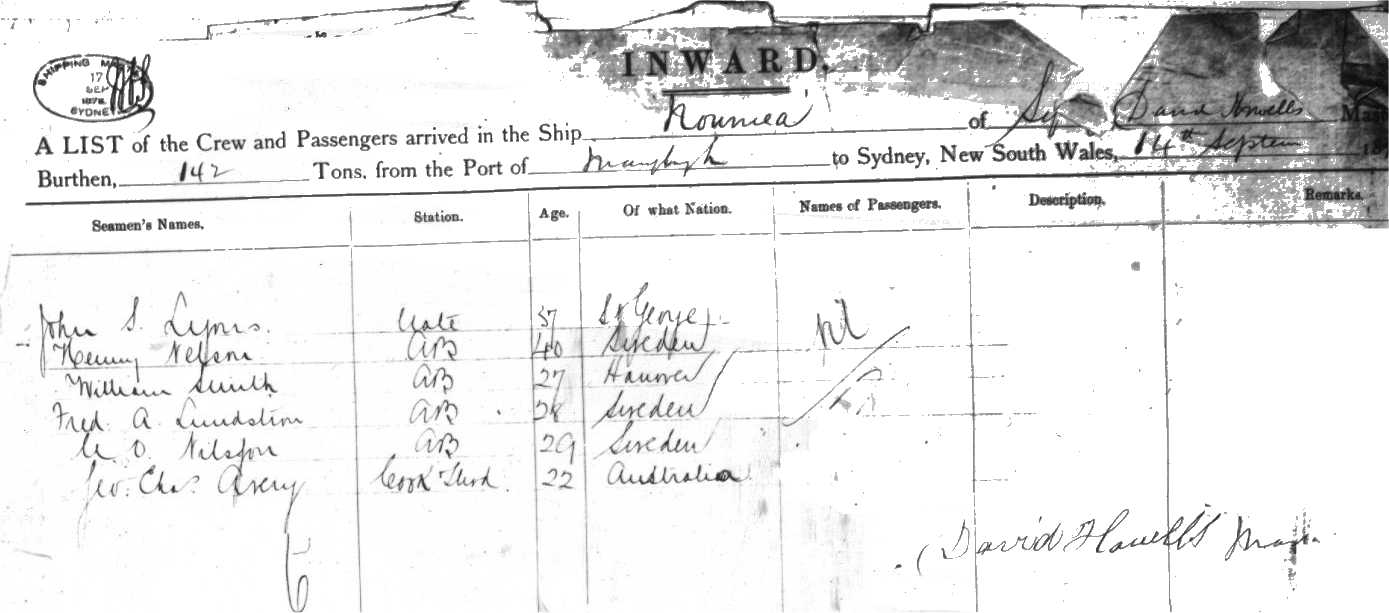 INWARD.
SHIPPING MAS
17
SEP
1878
SYDNEY
A LIST of the Crew and Passengers arrived in the Ship Noumea of Sy David Howells Mast
Burthen, 142 Tons, from the Port of to Sydney, New South Wales, 14th Septem 187
Seamen's Names. Station. Age. Of what Nation. Names of Passengers. Description. Remarks.
John S. Lyons. Mate 37 St George Nil
Henry Nelson AB 40 Sweden
William Smith AB 27 Hanover
Fred. A. Lundstrom AB 28 Sweden
O. Nilsson AB 29 Sweden
Geo. Chas. Avery Cook & Stwd. 22 Australia
6
David Howells Mas